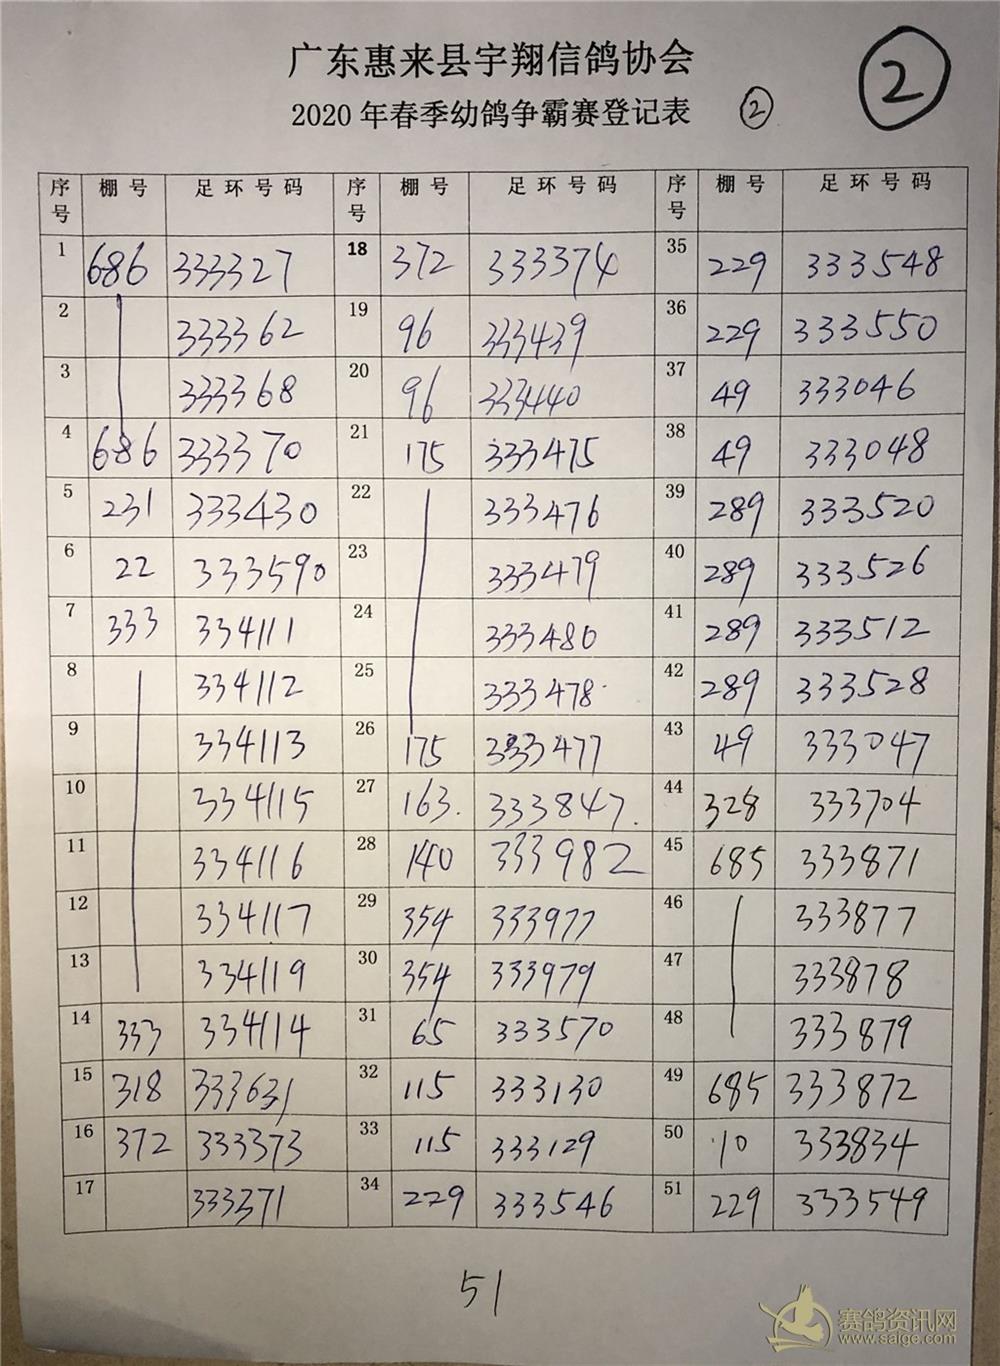 广东惠来县宇翔信鸽协会
2020年春季幼鸽争霸赛登记表 ②
②
序号 棚号 足环号码 序号 棚号 足环号码 序号 棚号 足环号码
1 686 333327 18 372 333374 35 229 333548
2 333362 19 96 333439 36 229 333550
3 333368 20 96 333440 37 49 333046
4 686 333370 21 175 333475 38 49 333048
5 231 333430 22 333476 39 289 333520
6 22 333590 23 333479 40 289 333526
7 333 334111 24 333480 41 289 333512
8 334112 25 333478 42 289 333528
9 334113 26 175 333477 43 49 333047
10 334115 27 163. 333847. 44 328 333704
11 334116 28 140 333982 45 685 333871
12 334117 29 354 333977 46 333877
13 334119 30 354 333979 47 333878
14 333 334114 31 65 333570 48 333879
15 318 333631 32 115 333130 49 685 333872
16 372 333373 33 115 333129 50 10 333834
17 333371 34 229 333546 51 229 333549
51
赛鸽资讯网
www.saige.com